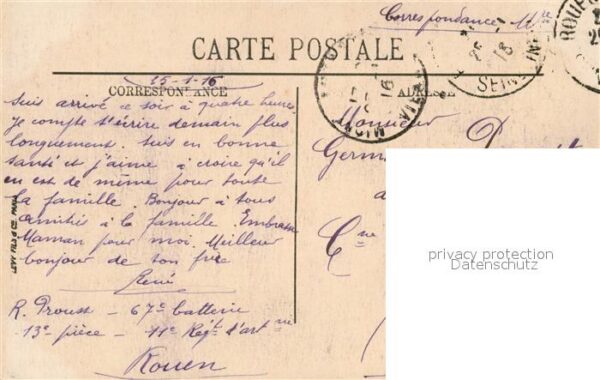 Correspondance Mre
CARTE POSTALE
CORRESPONDANCE
ADRESSE
15-1-16
Suis arrivé ce soir à quatre heures.
Je compte t'écrire demain plus
longuement. Suis en bonne
santé et j'aime à croire qu'il
en est de même pour toute
la famille. Bonjour à tous
amitiés à la famille. Embrasse
Maman pour moi. Meilleur
bonjour de ton frère
René
R. Proust - 67e batterie
-13e pièce - 11e Regt d'artie
Rouen
Monsieur
Germ
Cne
ROUE
SEINE INF
16
privacy protection
Datenschutz